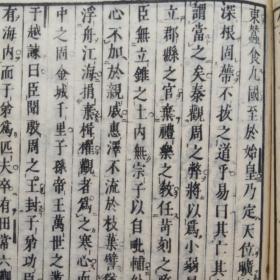 東蠶食九國至於始皇乃定天位曠
深根固蔕不拔之道乎易曰其亡其
謂當之矣秦觀周之弊將以爲小弱
立郡縣之官棄禮樂之敎任苛刻之
臣無立錐之土内無宗子以自毗輔
心不加於親戚惠澤不流於枝葉譬
浮舟江海捐棄楫櫂觀者爲之寒心
中之固金城千里子孫帝王萬世之業
于越諫曰臣聞殷周之王封子弟功臣
有海内而子弟爲匹夫卒有田常六